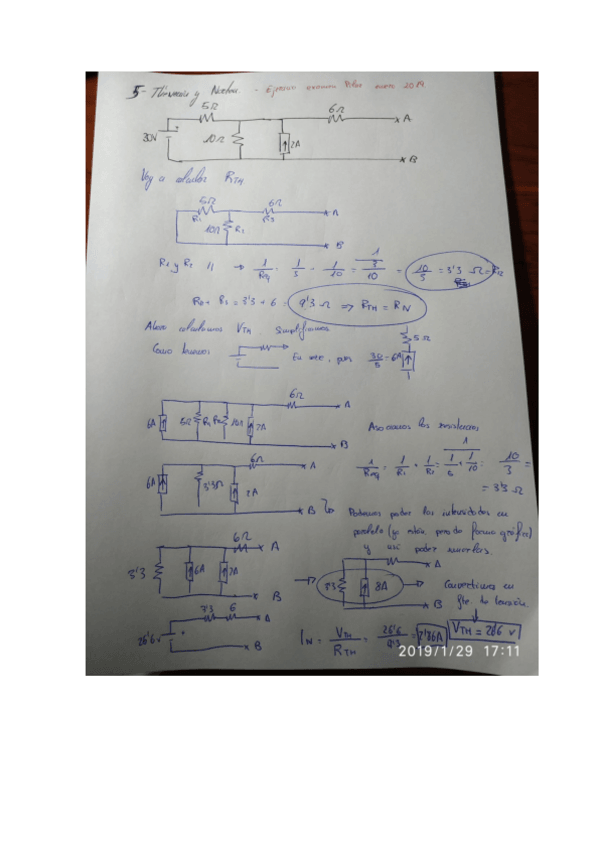 5- Thevenin y Norton - Ejercicio examen Pilar enero 2019
5Ω 6Ω
A
30V 10Ω 2A
B
Voy a calcular RTH
5Ω 6Ω
A
R1 R3
10Ω R2
B
R1 y R2 // → 1/Req = 1/5 + 1/10 = 10/3 = 3'3 Ω
Req + R3 = 3'3 + 6 = 9'3 Ω ⇒ RTH = RN
Ahora calculamos VTH. Simplificamos
5Ω
Como tenemos En serie, pues 30/5 = 6A
6Ω
A
6A 5Ω R1 R2 10Ω 2A
B
Asociamos las resistencias
1/Req = 1/R1 + 1/R2 = 1/5 + 1/10 = 10/3 =
= 3'3 Ω
6Ω
A
6A 3'3Ω 2A
B
Podemos poder las intensidades en
paralelo (ya están puesto forma gráfica)
y así poder sumarlas.
6Ω
A
3'3 6A 2A
B
A
3'3 8A
B
Convertimos en
fte. de tensión.
3'3 6
A
26'6v
B
IN = VTH/RTH = 26'6/9'3 = 2'86A
VTH = 26'6 v
2019/1/29 17:11